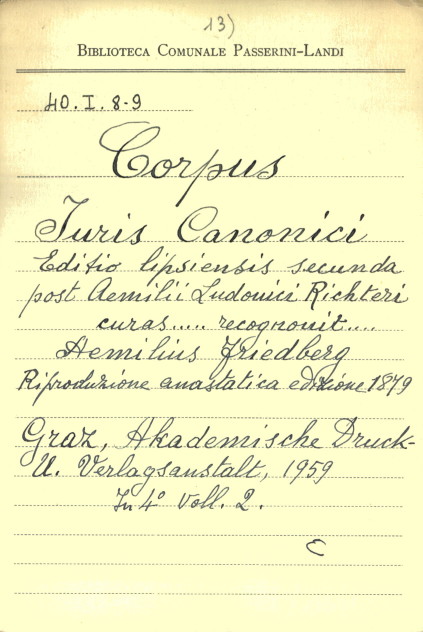 13)
BIBLIOTECA COMUNALE PASSERINI-LANDI
40.I.8-9
Corpus
Juris Canonici
Editio lipsiensis secunda
post Aemilii Ludovici Richteri
curas..... recognovit....
Aemilius Friedberg
Riproduzione anastatica edizione 1879
Graz, Akademische Druck-
U. Verlagsanstalt, 1959
In 4° Voll. 2.
C